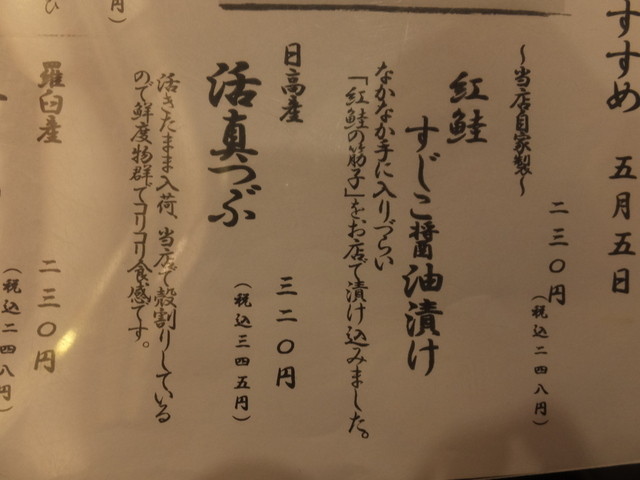 すすめ 五月五日
～当店自家製～
二三〇円
(税込二四八円)
紅鮭
すじこ醤油漬け
なかなか手に入りづらい
「紅鮭の筋子」をお店で漬け込みました。
日高産
三二〇円
(税込三四五円)
活真つぶ
活きたまま入荷、当店で殻割りしている
ので鮮度物群でコリコリ食感です。
羅臼産
二三〇円
(税込二四八円)
円)